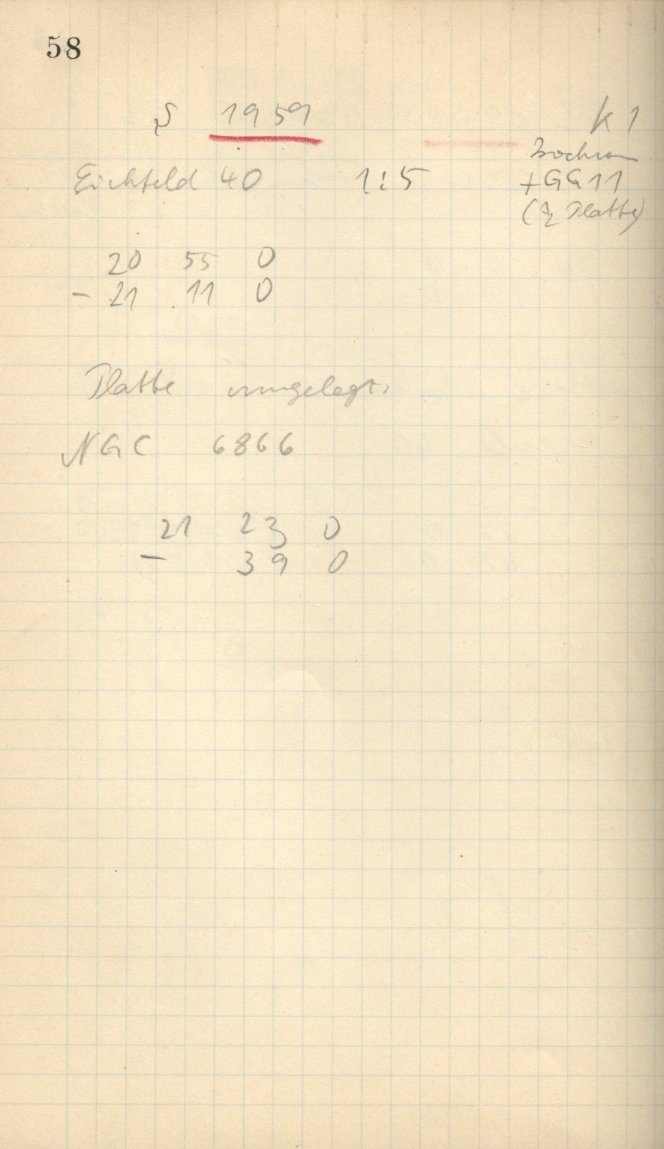 58
S 1959 K 1
Isochrom
Eichfeld 40 1:5 +GG11
(½ Platte)
20 55 0
- 21 11 0
Platte umgelegt.
NGC 6866
21 23 0
- 39 0